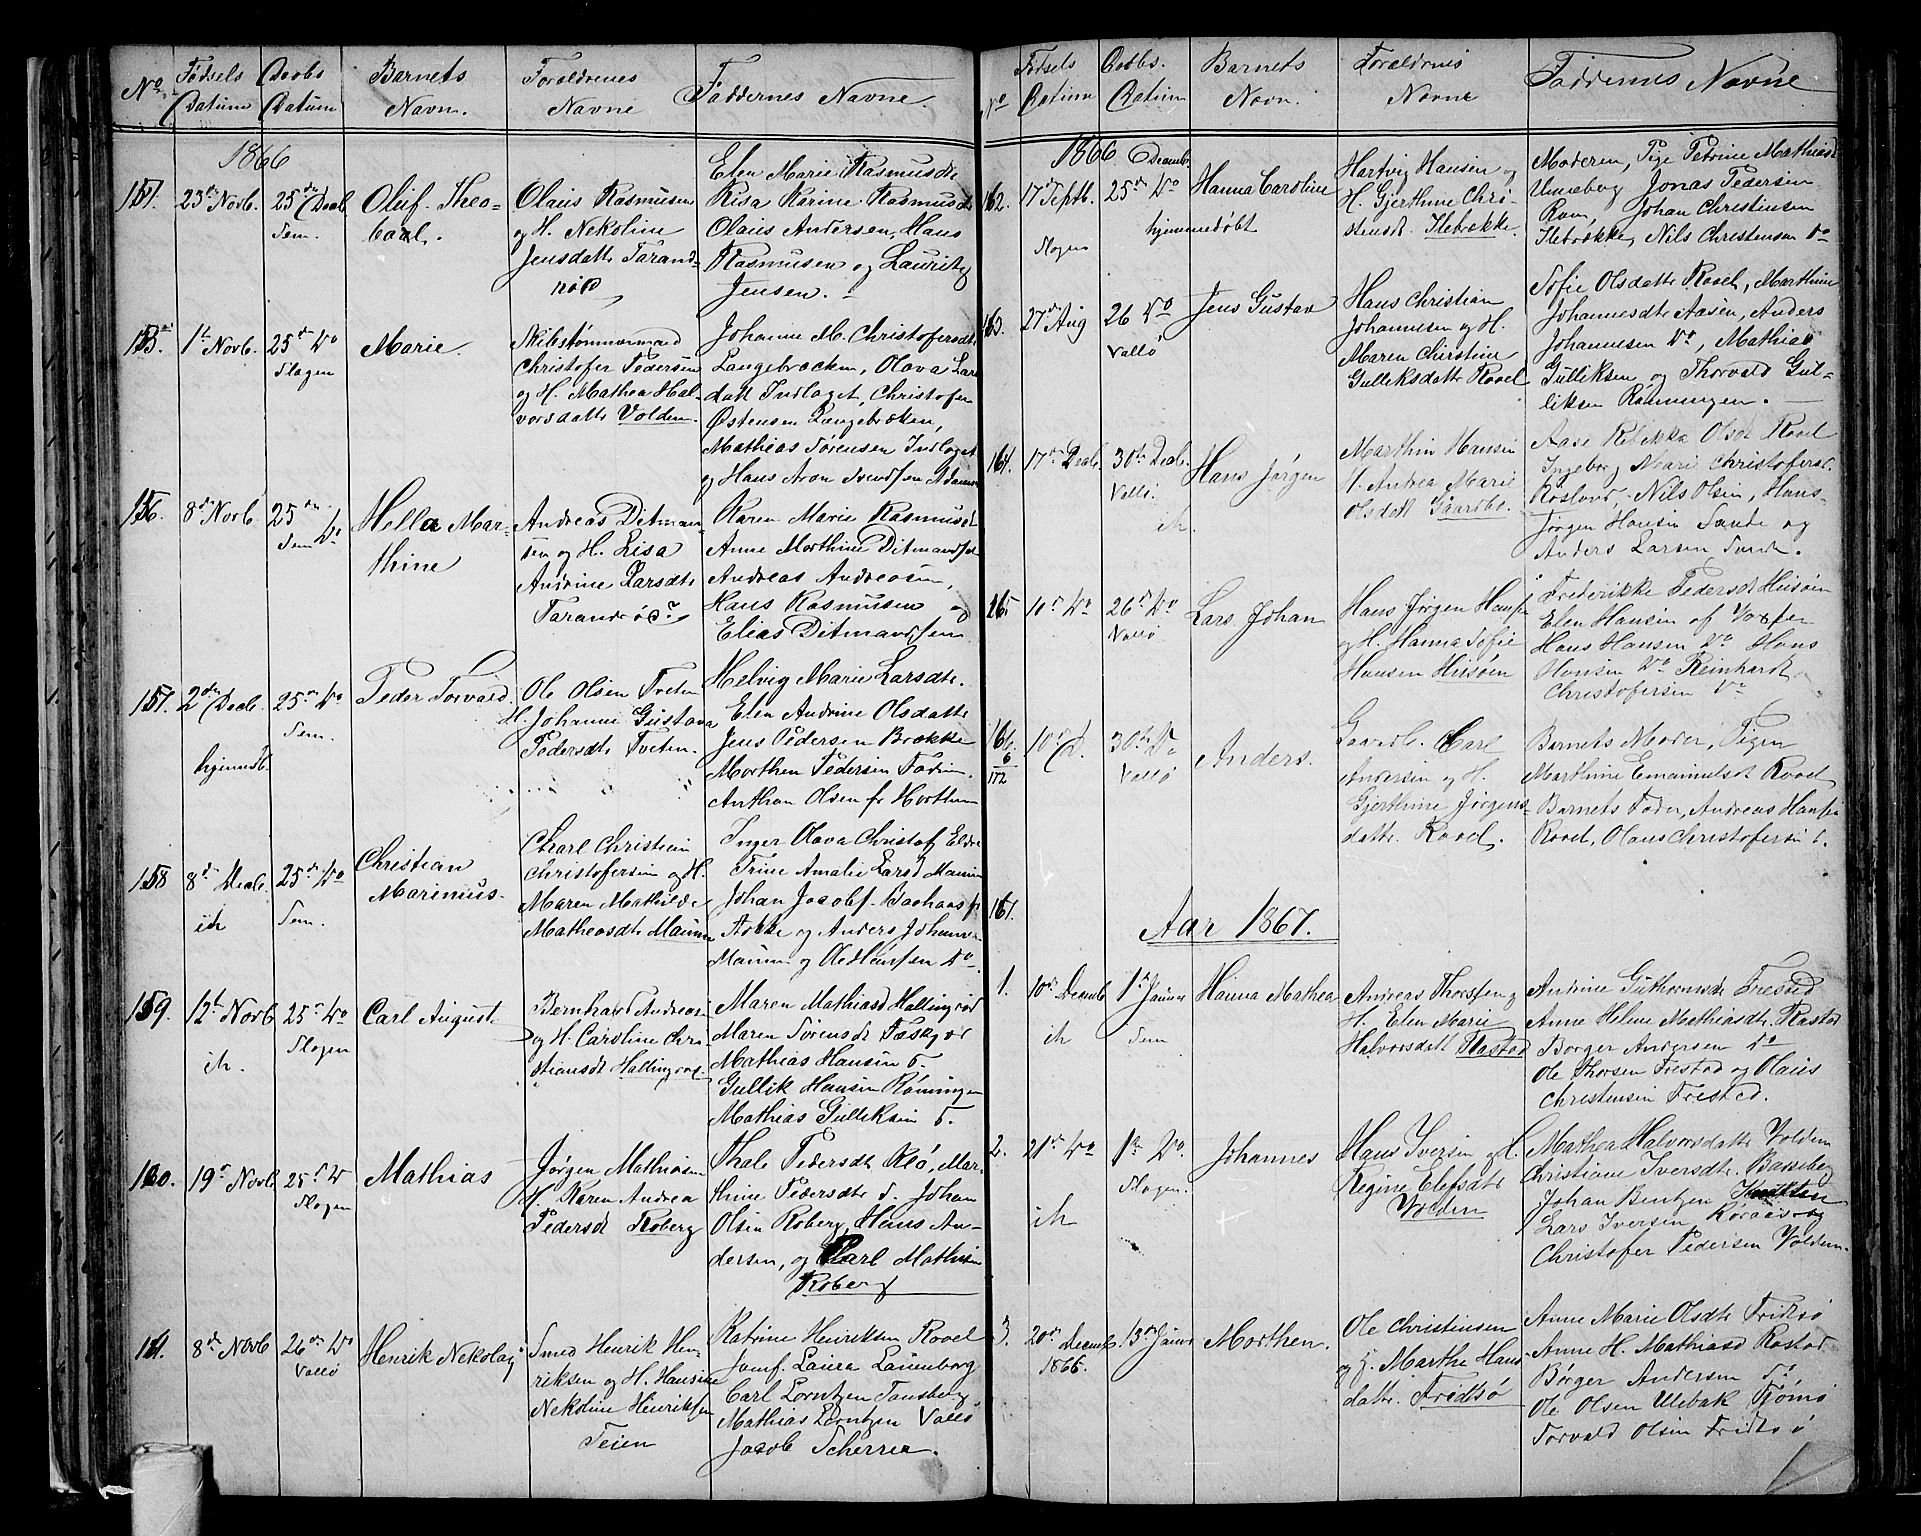 No
Fødsels
Datum
Daabs
Datum
Barnets
Navn.
Foraldrenes
Navne
Faddernes Navne.
1866
23de Novb.
25de Decb.
Sem.
Oluf Theo-
Olaus Rasmusen
og H. Nekoline
Jensdatte Tarand-
rød
Elen Marie Rasmusdt
Risa Karine Rasmusdt
Olaus Andersen, Hans
Rasmusen og Lauritz
Jensen.
155.
1t Novb.
25de Do
Slagen
Marie.
Skibstømmermand
Christofer Pedersen
og H. Mathea Hal-
vorsdatte Volden.
Johanne M. Christofersdt
Langebrocken, Olava Lars
datt Indlaget, Christofer
Østensen Langebrocken,
Mathias Sørensen Indlaget
og Hans Aron Svendsen
156.
8de Novb.
25de Do
Sem
Hella Mar-
thine
Andreas Ditman-
sen og H. Lisa
Andrine Larsdt.
Tarandrød
Karen Marie Rasmusdt
Anne Morthine Ditmandsdt
Andreas Andreasen,
Hans Rasmusen og
Elias Ditmandsen
157.
2den Decb.
hjemmedb.
25de Do
Sem.
Peder Torvard.
Ole Olsen Tveten
H. Johanne Gustava
Pedersdt Tveten.
Helvig Marie Larsdt.
Elen Andrine Olsdatte
Jens Pedersen Brække
Morthen Pedersen
Anthon Olsen
158
8de Decb.
ih
25de Do
Sem.
Christian
Marinus.
Charl Christian
Christofersen og H.
Maren Mathilde
Matheasdt
Inger Olava Christof
Trine Amalie Larsd
Johan Jacobs.
og Anders Johanse
159.
12t Novb
ih.
25de Do
Slagen
Carl August
Bernhard Andreas
og H. Caroline Chri
stiansdt Hallingrød.
Maren Mathiasd Hallingrød
Maren Sørensdt
Mathias Hansen
Gullik Hansen Røningen
Mathias Gulliksen
160.
19de Novb.
25de Do
Slagen
Mathias
Jørgen Mathisen
H. Karen Andrea
Pedersdt Roberg
Thale Pedersdt Mar-
thine Pedersdt Johan
Olsen Roberg, Hans An-
dersen, og Carl Mathisen
Roberg
8de Novb
26de Do
Vallø
Henrik Nekolaj
Smed Henrik Hen-
riksen og H. Hansine
Nekoline Henriksen
Teien
Katrine Henriksen Rovel
Jomf. Laura Lauenborg
Carl Lorntzen Tønsberg
Mathias Lorntzen Vallø
Jacob
Fødsels
Datum
No
Daabs.
Datum
Barnets
Navn.
Foraldrenes
Navne
Faddernes Navne
1866
Decemb.
162.
17de Septb.
Slagen
25de Do
hjemmedøbt
Hanna Caroline
Hartvig Hansen og
H. Gjerthine Chri-
stensdt. Ilebrække.
Moderen, Pige Petrine Mathiasd
Unneberg Jonas Pedersen
Ram, Johan Christensen
Ilebrække, Nils Christensen Do
163.
27de Aug
26 Do
Vallø
Jens Gustav
Hans Christian
Johannesen og H.
Maren Christine
Gulliksdatte Rovel
Sofie Olsdatte Roel, Marthine
Johannesdt Aasen, Anders
Johannesen Do, Mathias
Gulliksen og Thorvald Gul-
liksen Rønningen.
164.
17de Decb.
ih
30te Decb.
Vallø.
Hans Jørgen
Marthin Hansen
Andrea Marie
Olsdatt Gaarsbo.
Aase Rebekka Olsdt Roel
Ingeborg Marie Christofersd.
Nils Olsen, Hans
Jørgen Hansen Sande og
Anders Larsen Sande.
165
10de Do
26de Do
Vallø
Lars Johan
Hans Jørgen Hansen
og H. Hanna Sofie
Hansen Husøen
Frederikke Pedersdt Husøen
Elen Hansen af
Hans Hansen Do Hans
Hansen Do Reinhardt
Christofersen Do
166
30te Do
Vallø
Anders.
Carl
Andersen og H.
Gjerthine Jørgens-
datte. Rovel.
Barnets Moder, Pigen
Marthine Emanuelsdt Roael
Barnets Fader, Andreas Hansen
Roel, Olaus Christofersen
167.
Aar 1867.
1.
10de Decemb
ih
1te Januar
Sem
Hanna Mathea
Andreas Thorssen og
H. Elen Marie
Halvorsdatt Rastad
Andrine Guthormsdt Frestad
Anne Helene Mathiasdt. Rastad
Borger Andersen Do
Ole Thorsen Frestad og Olaus
Christensen Frestad.
2.
21de Do
ih
1te Do.
Slagen.
Johannes
Hans Iversen og H.
Regine Elefsdt
Volden
Mathea Halvorsdatte Volden
Christiane Iversdt. Basseberg
Johan Bentzen
Lars Iversen og
Christofer Pedersen Volden.
3.
20de Decemb.
1866.
13de Januar
Morthen.
Ole Christensen
og H. Marthe Hans
datte. Fridtsø
Anne Marie Olsdt Fridtsø
Anne H. Mathiasd Rastad
Børger Andersen
Ole Olsen Ulebak Tjømø
Torvald Olsen Fridtsø